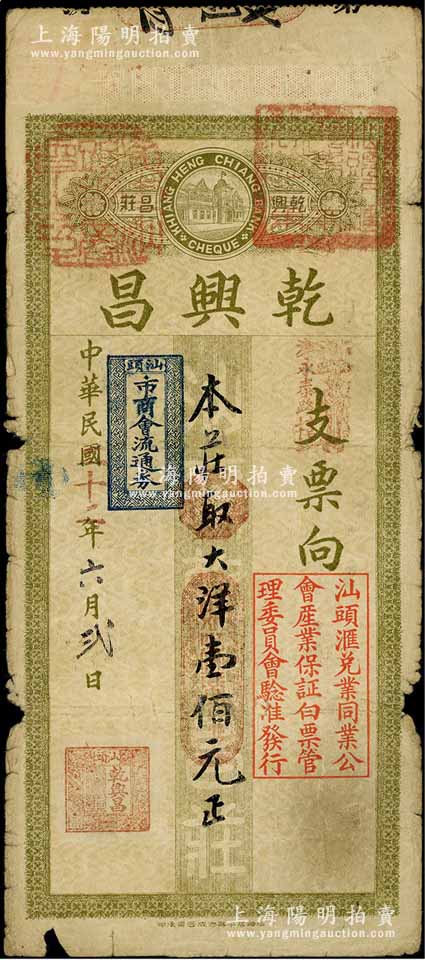 上海陽明拍賣
www.yangmingauction.com
KHIANG HENG CHIANG BANK
CHEQUE
乾興
昌莊
乾興昌
支票向
本莊取大洋壹佰元正
汕頭
市商會流通券
中華民國十二年六月弍日
汕頭滙兌業同業公
會產業保証白票管
理委員會驗准發行
乾興昌
莊
上海陽明拍賣
www.yangmingauction.com
上海陽明拍賣
www.yangmingauction.com